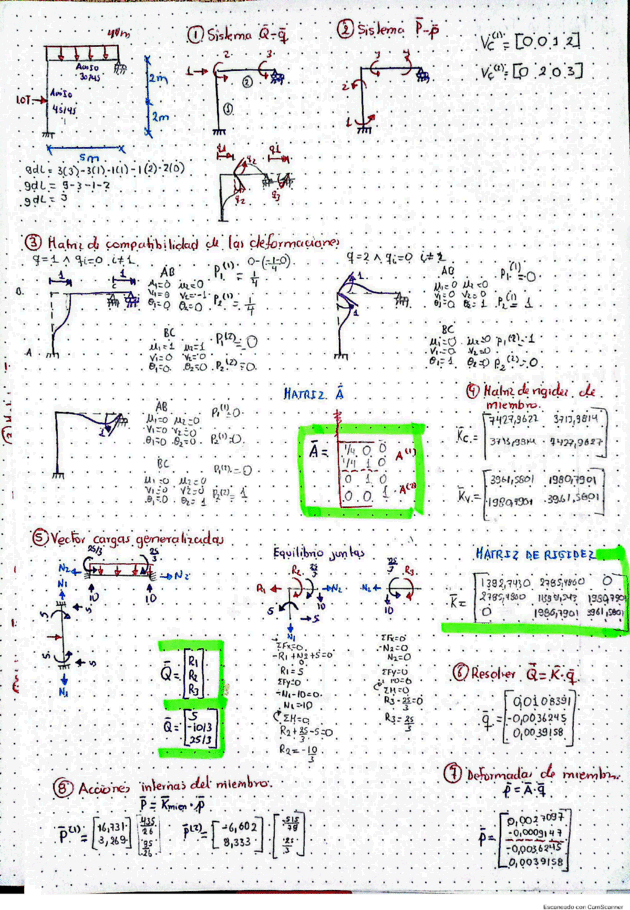 ① Sistema Q̄-q̄
② Sistema P̄-p̄
Vc⁽¹⁾=[0 0 1 2]
Vc⁽²⁾=[0 2 0 3]
4t/m
Acoiso
30/45
10T
Acoiso
45/45
2m
2m
5m
gdL = 3(3)-3(1)-1(1)-1(2)-2(0)
gdL = 9-3-1-2
gdL = 3
③ Matriz de compatibilidad de las deformaciones
q=1 ∧ qi=0 i≠1
AB
μ1=0 μ2=0
V1=0 V2=-1
θ1=0 θ2=0
P1⁽¹⁾ = 0-(-1-0)/4 = 1/4
P2⁽¹⁾ = 1/4
BC
μ1=1 μ2=1
V1=0 V2=0
θ1=0 θ2=0
P1⁽²⁾=0
P2⁽²⁾=0
q=2 ∧ qi=0 i≠2
AB
μ1=0 μ2=0
V1=0 V2=0
θ1=0 θ2=1
P1⁽¹⁾=0
P2⁽¹⁾= 1
BC
μ1=0 μ2=0
V1=0 V2=0
θ1=1 θ2=0
P1⁽²⁾=1
P2⁽²⁾=0
AB
μ1=0 μ2=0
V1=0 V2=0
θ1=0 θ2=0
P1⁽¹⁾=0
P2⁽¹⁾=0
BC
μ1=0 μ2=0
V1=0 V2=0
θ1=0 θ2=1
P1⁽²⁾=0
P2⁽²⁾= 1
MATRIZ Ā
Ā =
1/4 0 0
1/4 1 0
A⁽¹⁾
0 1 0
0 0 1
A⁽²⁾
④ Matriz de rigidez de
miembro.
K̄c = [7427,9622 3713,9814
3713,9814 7427,9627]
K̄v = [3961,5801 1980,7901
1980,7901 3961,5801]
⑤ Vector cargas generalizadas
25/3
25/3
N2
N2
N1
10
10
5
5
5
5
N1
Q̄ = [R1
R2
R3]
Q̄ = [5
-10/3
25/3]
Equilibrio juntas
R2 25/3
R1 N2
5 10
5
N1
25/3 R3
N2
10
ΣFx=0
-R1+N2+5=0
R1=5
ΣFy=0
-N1-10=0
N1=10
ΣM=0
R2+25/3-5=0
R2=-10/3
ΣFx=0
-N2=0
N2=0
ΣFy=0
10=0
ΣM=0
R3-25/3=0
R3=25/3
MATRIZ DE RIGIDEZ
K̄ = [1392,7430 2785,4860 0
1980,7901
0 1980,7901 3961,5801]
⑥ Resolver Q̄=K̄·q̄
q̄ = [0,0108391
-0,0036245
0,0039158]
⑦ Deformadas de miembro
p̄=Ā·q̄
p̄ = [0,0027097
-0,0009147
-0,0036245
0,0039158]
⑧ Acciones internas del miembro.
P̄ = Kmiem · p̄
P̄⁽¹⁾= [16,731
3,269]
[435/26
85/26]
P̄⁽²⁾= [-6,602
8,333]
[-515/78
25/3]
Escaneado con CamScanner